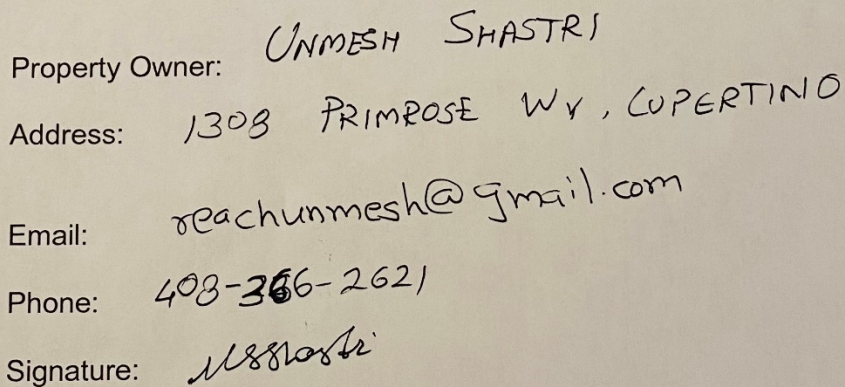 Property Owner: UNMESH SHASTRI
Address: 1308 PRIMROSE WY, CUPERTINO
Email: reachunmesh@gmail.com
Phone: 408-366-2621
Signature: